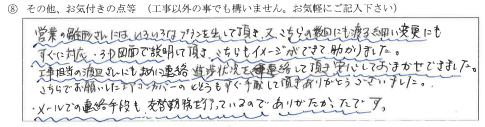 ⑧ その他、お気付きの点等 （工事以外の事でも構いません。お気軽にご記入下さい）
営業の さんには、いろいろなプランを出して頂き、又、こちらの数回にも渡る細い変更にも
すぐに対応・3D図面で説明して頂き、こちらもイメージができて助かりました。
工事担当の渡辺さんにもまめに連絡 進歩状況を 連絡して頂き 安心しておまかせできました。
こちらでお願いしたエアコンカバーの もすぐ手配して頂きありがとうございました。
・メールでの連絡手段も 交替勤務を行っているので ありがたかったです。